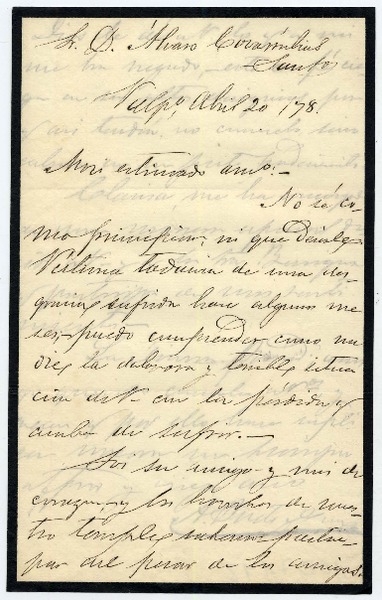 S. D. Álvaro Covarrubias
Santgo
Valpo, Abril 20/78.
Mui estimado amo:-
No sé co-
mo principiar, ni que decirle.
Victima todavia de una des-
gracia sufrida hace algunos me-
ses, puedo comprender como na-
die, la dolorosa y terrible situa-
cion de V. con la pérdida q.
acaba de sufrir.-
Soi su amigo y mui de
corazon, y los hombres de nues-
tro temple sabemos partici-
par del pesar de los amigos.